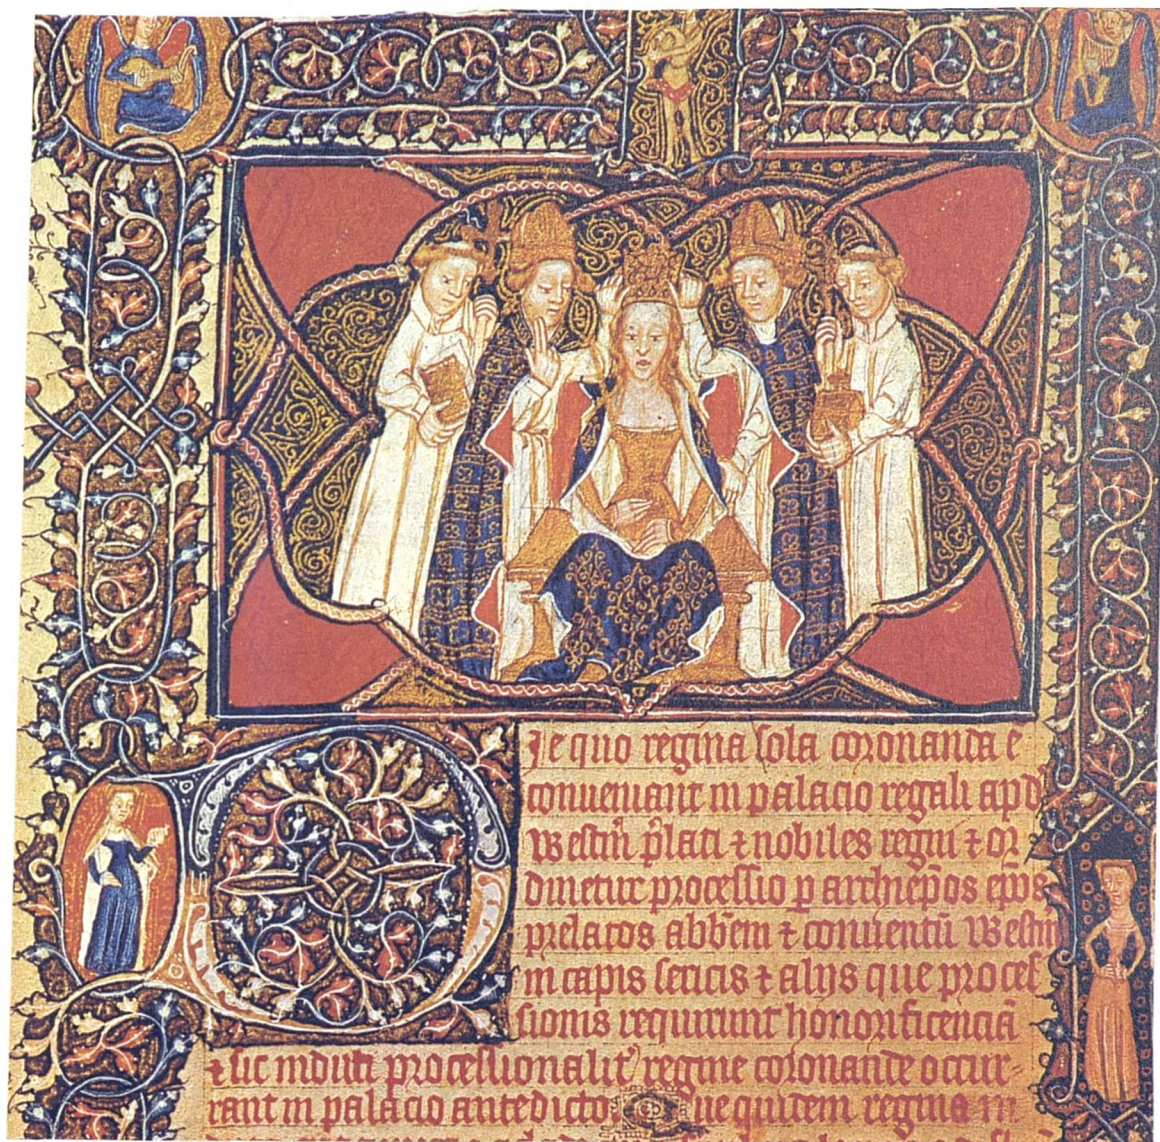 Die quo regina sola coronanda e
conueniant in palacio regali apd
Westm̄ p̄lati ⁊ nobiles regni ⁊ or
dinetur processio p archiep̄os ep̄os
prelatos abbēm ⁊ conuentū Westm̄
in capis sericis ⁊ alijs que proces
sionis requirunt honorificenciā
⁊ sic induti processionalit᷒ regine coronande occur-
rant in palacio antedicto Que quidem regina in